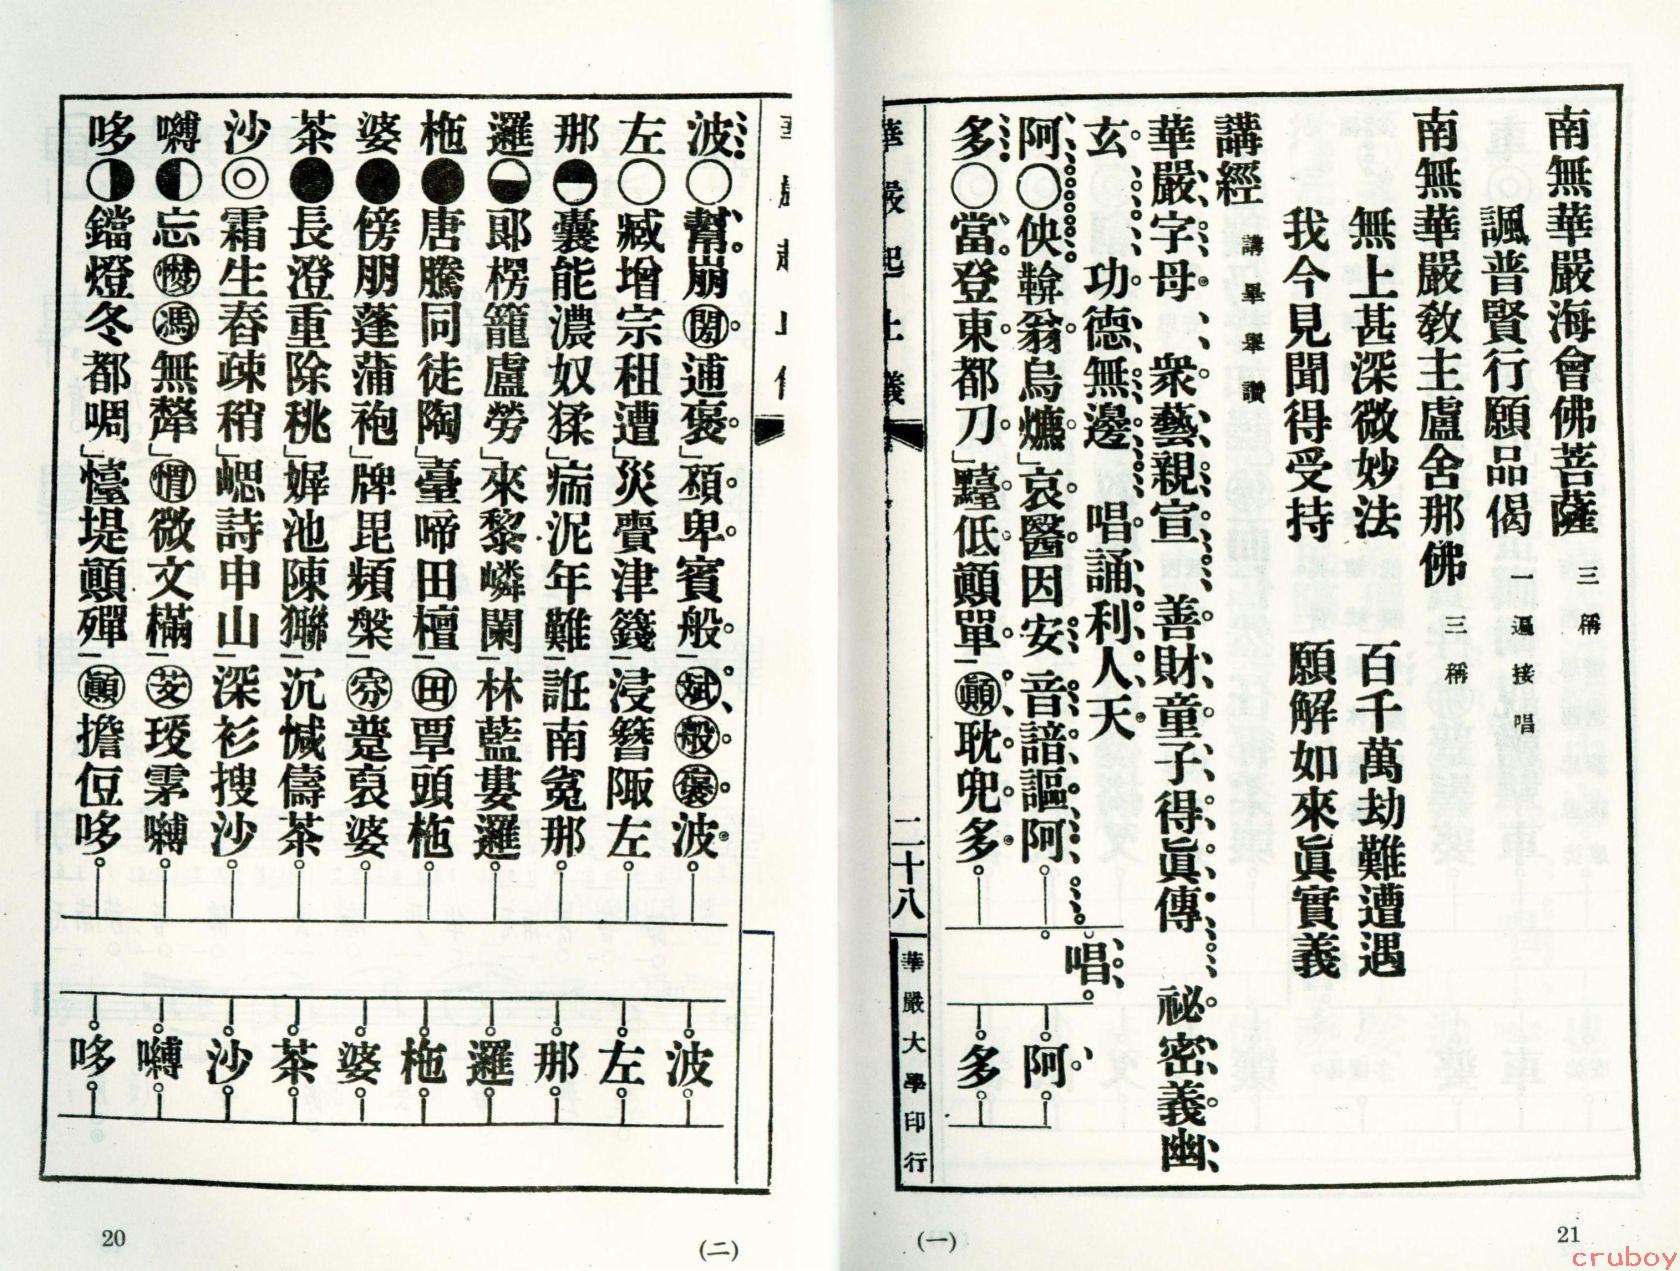 南無華嚴海會佛菩薩 三稱
諷普賢行願品偈 一遍接唱
南無華嚴教主盧舍那佛 三稱
無上甚深微妙法 百千萬劫難遭遇
我今見聞得受持 願解如來眞實義
講經 講畢舉讚
華嚴字母 衆藝親宣 善財童子得眞傳 祕密義幽
玄 功德無邊 唱誦利人天 唱
阿○佒鞥翁烏爊」哀醫因安 音諳謳阿 阿
多○當登東都刀」𪒴低顚單｜㊀顚耽兜多 多
華嚴起止儀
二十八
華嚴大學印行
(一)
21
波○幫崩閍逋褒」䫌卑賓般｜斌般褒波 波
左○臧增宗租遭」災賷津籛｜浸簪陬左 左
那囊能濃奴猱」痻泥年難｜誑南㝹那 那
邏郞楞籠盧勞」來黎嶙闌｜林藍婁邏 邏
柂●唐騰同徒陶」臺啼田檀｜田覃頭柂 柂
婆●傍朋蓬蒲袍」牌毘頻槃｜㝑蹔裒婆 婆
茶●長澄重除桃」㜑池陳獙｜沉㺂儔茶 茶
沙◎霜生春疎稍」崽詩申山｜深衫搜沙 沙
嚩◐忘馮無犛」微文樠｜芠嚩 嚩
哆◑鐺燈冬都啁」懛堤顚殫｜顚擔侸哆 哆
(二)
20
cruboy